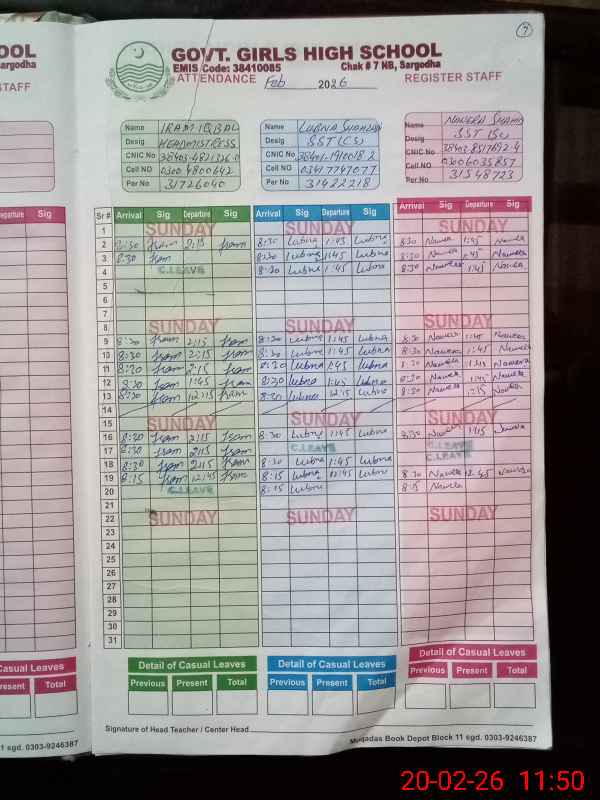 7
OOL
Sargodha
STAFF
GOVT. GIRLS HIGH SCHOOL
EMIS Code: 38410085 Chak # 7 NB, Sargodha
ATTENDANCE Feb 2026 REGISTER STAFF
Name IRAM IQBAL
Desig HEADMISTRESS
CNIC No
Cell NO 0300 4800642
Per No 31726040
Name LUBNA
Desig SST (CS)
CNIC No
Cell NO 03417747077
Per No 31422218
Name
Desig SST (Sc)
CNIC No
Cell NO 03006035857
Per No 31548723
Departure Sig
Sr # Arrival Sig Departure Sig Arrival Sig Departure Sig Arrival Sig Departure Sig
1 SUNDAY SUNDAY SUNDAY
2 8:30 Iram 2:15 Iram 8:30 Lubna 1:45 Lubna 8:30 1:45
3 8:30 Iram 8:30 Lubna 1:45 Lubna 8:30 1:45
4 C.LEAVE 8:30 Lubna 1:45 Lubna 8:30 1:45
5
6
7
8 SUNDAY SUNDAY SUNDAY
9 8:30 Iram 2:15 Iram 8:30 Lubna 1:45 Lubna 8:30 1:45
10 8:30 Iram 2:15 Iram 8:30 Lubna 1:45 Lubna 8:30 1:45
11 8:30 Iram 2:15 Iram 8:30 Lubna 1:45 Lubna 8:30
12 8:30 Iram 1:45 Iram 8:30 Lubna 1:45 Lubna 8:30 1:45
13 8:30 Iram 12:15 Iram 8:30 Lubna 12:15 Lubna 8:30 12:15
14
15 SUNDAY SUNDAY SUNDAY
16 8:30 Iram 2:15 Iram 8:30 Lubna 1:45 Lubna 8:30
17 8:30 Iram 2:15 Iram C.LEAVE C.LEAVE
18 8:30 Iram 2:15 Iram 8:30 Lubna 1:45 Lubna C.LEAVE
19 8:15 Iram 12:45 Iram 8:15 Lubna 12:45 Lubna 8:30 12:45
20 C.LEAVE 8:15 Lubna 8:15
21
22 SUNDAY SUNDAY SUNDAY
23
24
25
26
27
28
29
30
31
Casual Leaves
Present Total
Detail of Casual Leaves Detail of Casual Leaves Detail of Casual Leaves
Previous Present Total Previous Present Total Previous Present Total
Signature of Head Teacher / Center Head
Muqadas Book Depot Block 11 sgd. 0303-9246387
11 sgd. 0303-9246387
20-02-26 11:50